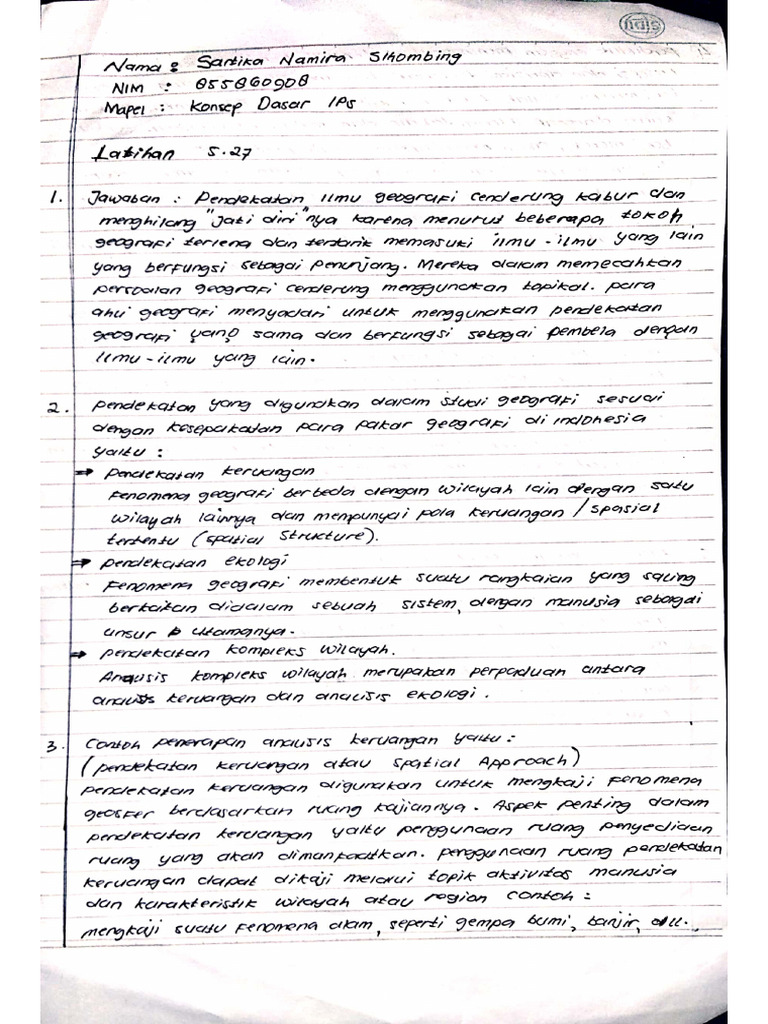 Nama : Sartika Namira Sihombing
NIM : 855860908
Mapel : Konsep Dasar IPS
Latihan 5.27
1. Jawaban : Pendekatan Ilmu geografi cenderung kabur dan
menghilang "Jati diri"nya karena menurut beberapa tokoh
geografi terlena dan tertarik memasuki ilmu-ilmu yang lain
yang berfungsi sebagai penunjang. Mereka dalam memecahkan
persoalan geografi cenderung menggunakan topikal. para
ahli geografi menyadari untuk menggunakan pendekatan
geografi yang sama dan berfungsi sebagai pembeda dengan
Ilmu-ilmu yang lain.
2. Pendekatan yang digunakan dalam studi geografi sesuai
dengan kesepakatan para pakar geografi di indonesia
yaitu :
→ Pendekatan keruangan
Fenomena geografi berbeda dengan wilayah lain dengan satu
wilayah lainnya dan mempunyai pola keruangan / spasial
tertentu (spatial structure).
→ Pendekatan ekologi
Fenomena geografi membentuk suatu rangkaian yang saling
berkaitan didalam sebuah sistem, dengan manusia sebagai
unsur utamanya.
→ Pendekatan kompleks wilayah.
Analisis kompleks wilayah merupakan perpaduan antara
analisis keruangan dan analisis ekologi.
3. Contoh penerapan analisis keruangan yaitu :
(pendekatan keruangan atau Spatial Approach)
Pendekatan keruangan digunakan untuk mengkaji Fenomena
geosfer berdasarkan ruang kajiannya. Aspek penting dalam
pendekatan keruangan yaitu penggunaan ruang penyediaan
ruang yang akan dimanfaatkan. penggunaan ruang pendekatan
keruangan dapat dikaji melalui topik aktivitas manusia
dan karakteristik wilayah atau region contoh :
mengkaji suatu Fenomena alam, seperti gempa bumi, banjir, dll.